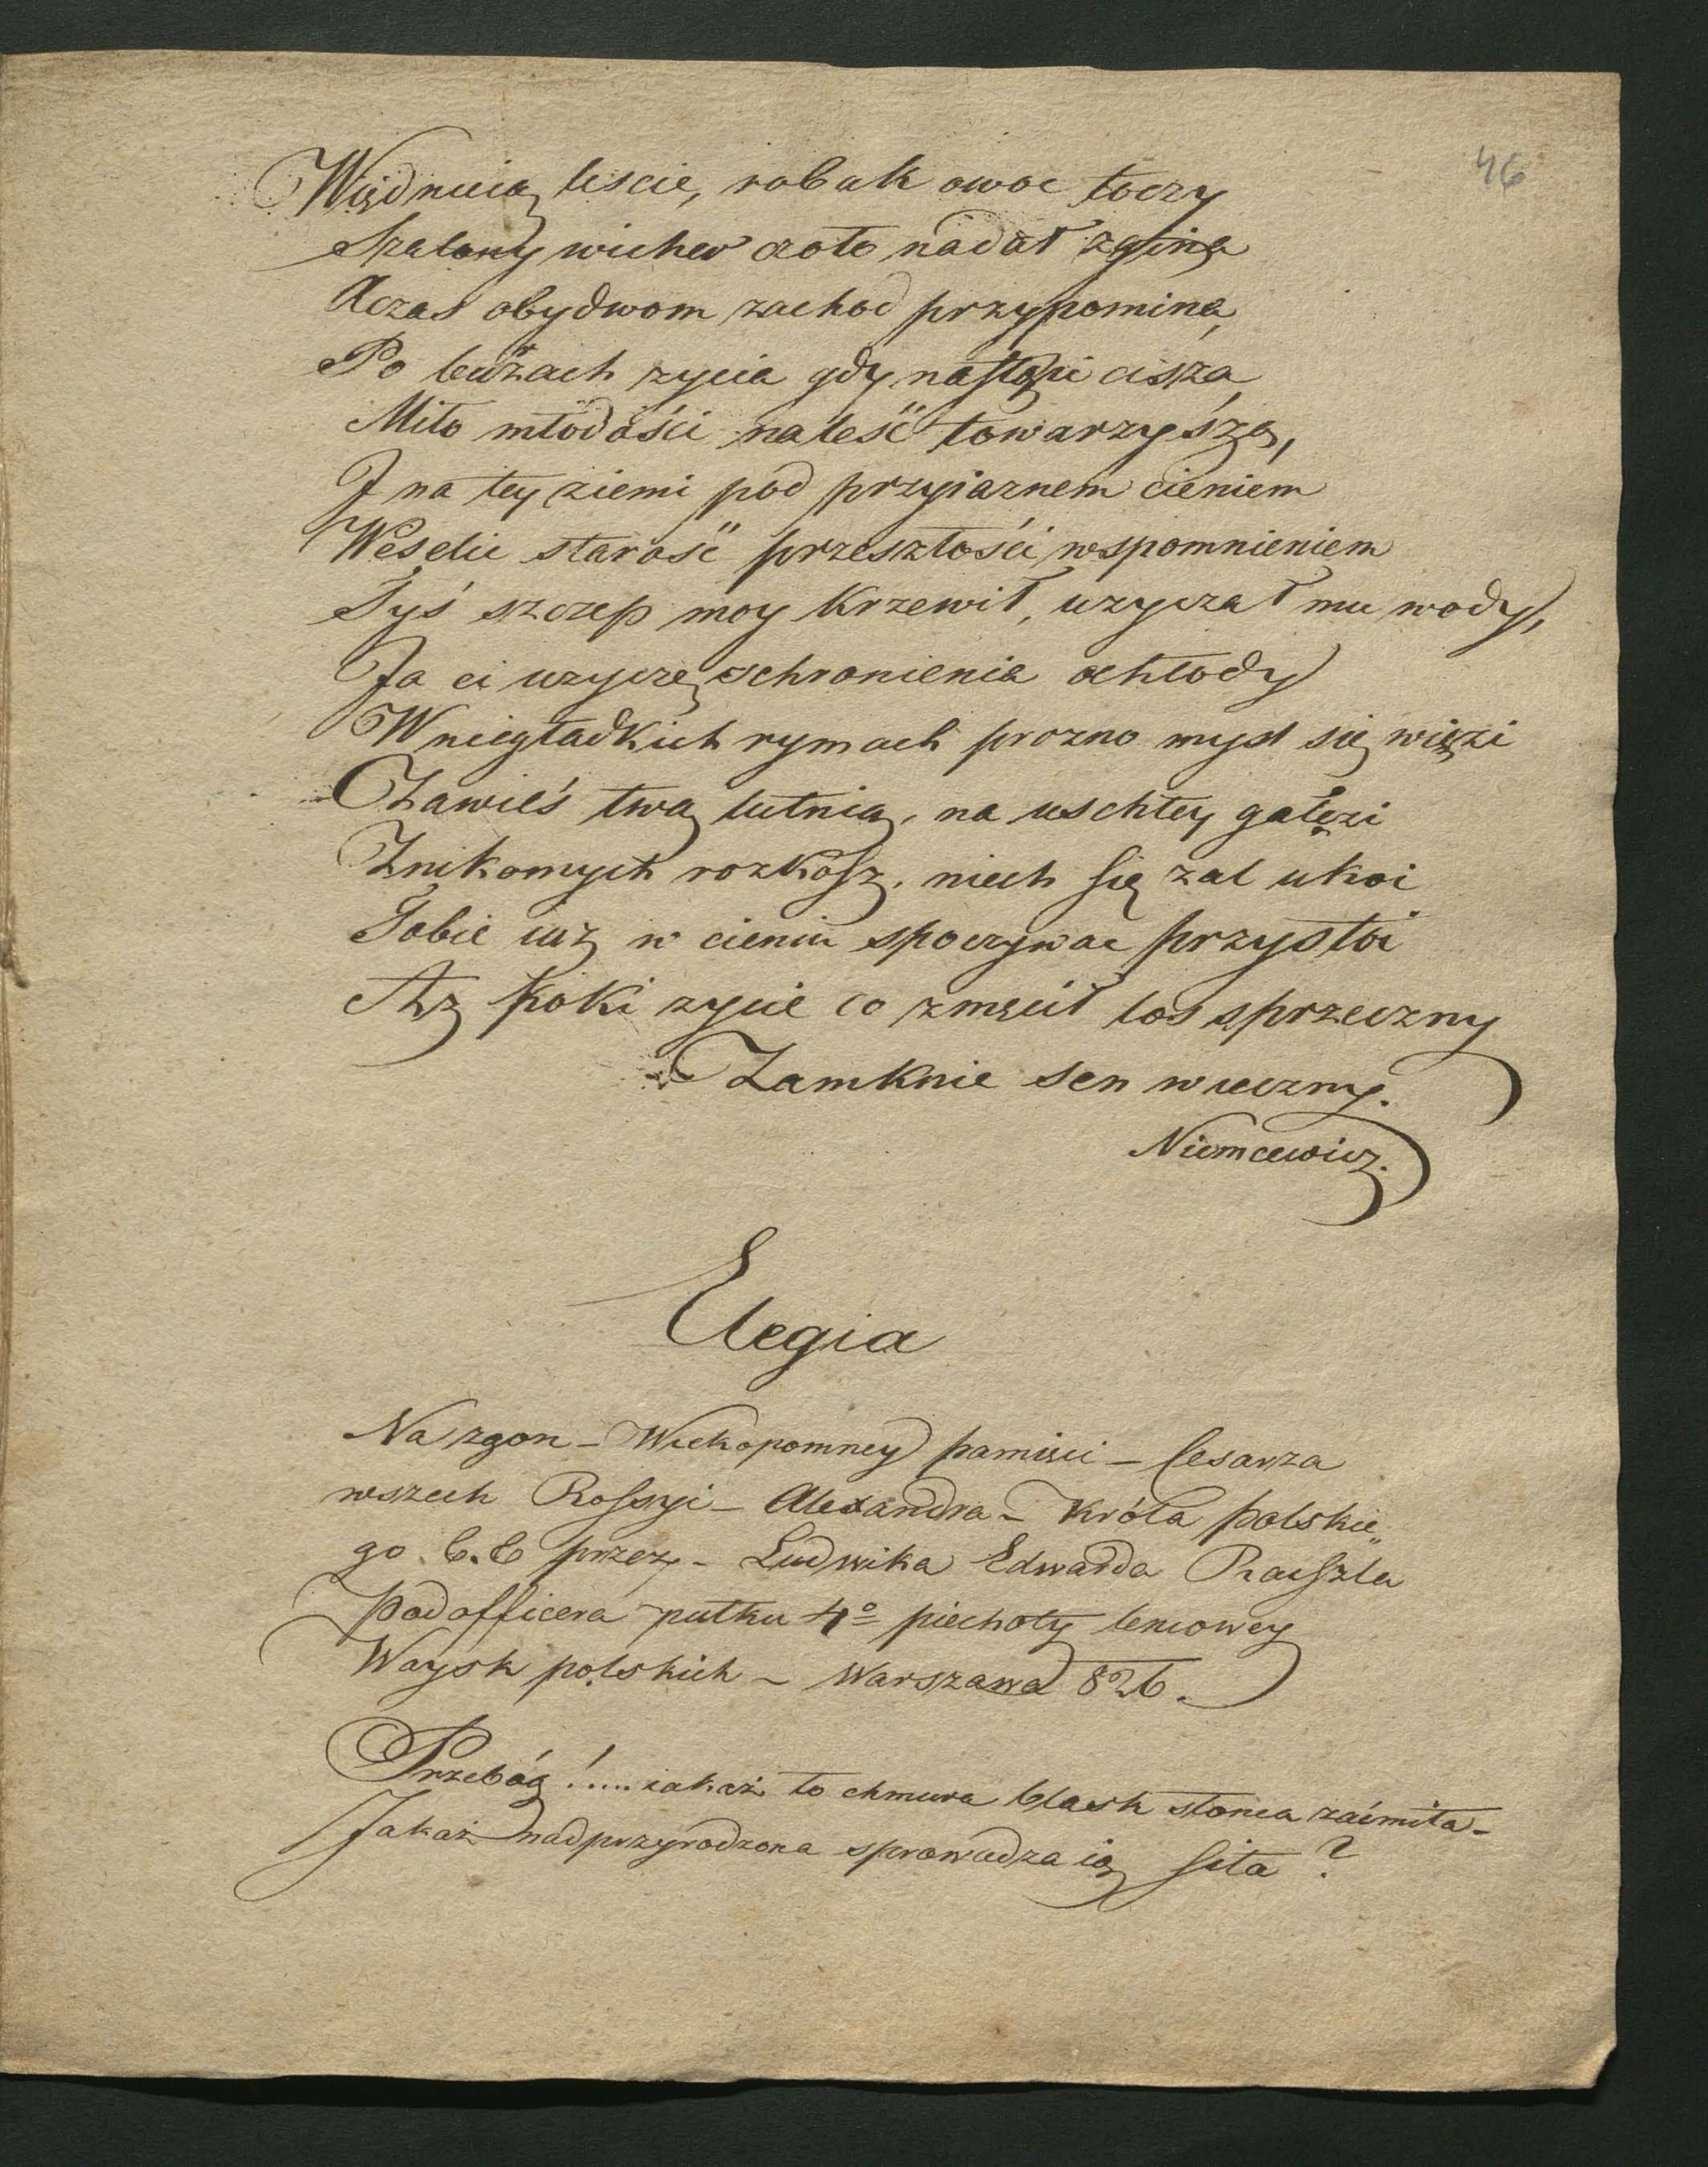 46
Więdnieią liscie, robak owoc toczy
Szalony wicher czoło nadał zgina
A czas obydwom zachod przypomina,
Po burzach zycia gdy nastąpi cisza,
Miło młodości naleść towarzysza,
I na tey ziemi pod przyiaznem cieniem
Weselić starość przeszłości wspomnieniem
Tyś szczep moy krzewił, uzyczał mu wody,
Ja ci uzyczę schronienia ochłody
W niegładkich rymach prozno mysl się więzi
Zawieś twą lutnią, na uschłey gałęzi
Znikomych rozkosz, niech się zal ukoi
Tobie iuz w cieniu spoczywac przystoi
Az poki zycie co zmącił los sprzeczny
Zamknie sen wieczny.
Niemcewicz.
Elegia
Na zgon – Wiekopomney pamięci – Cesarza
wszech Rossyi – Alexandra – Króla polskie„
go &.& przez – Ludwika Edwarda
Podofficera pułku 4º piechoty liniowey
Woysk polskich – Warszawa 826.
Przebóg!.... iakaż to chmura blask słonca zaćmiła –
Jakaż nadprzyrodzona sprowadza ią siła?